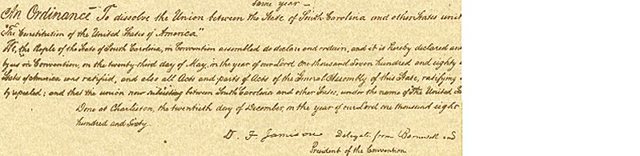 same year —
An Ordinance To dissolve the Union between the State of South Carolina and other States unit
"The Constitution of the United States of America."
We, the People of the State of South Carolina, in Convention assembled do declare and ordain, and it is hereby declared and
by us in Convention, on the twenty third day of May, in the year of our Lord one thousand Seven hundred and eighty
States of America was ratified, and also all Acts and parts of Acts of the General Assembly of this State, ratifying
by repealed; and that the union now subsisting between South Carolina and other States, under the name of the United St
Done at Charleston, the twentieth day of December, in the year of our Lord one thousand eight
hundred and sixty.
D. F Jamison Delegate from Barnwell and
President of the Convention